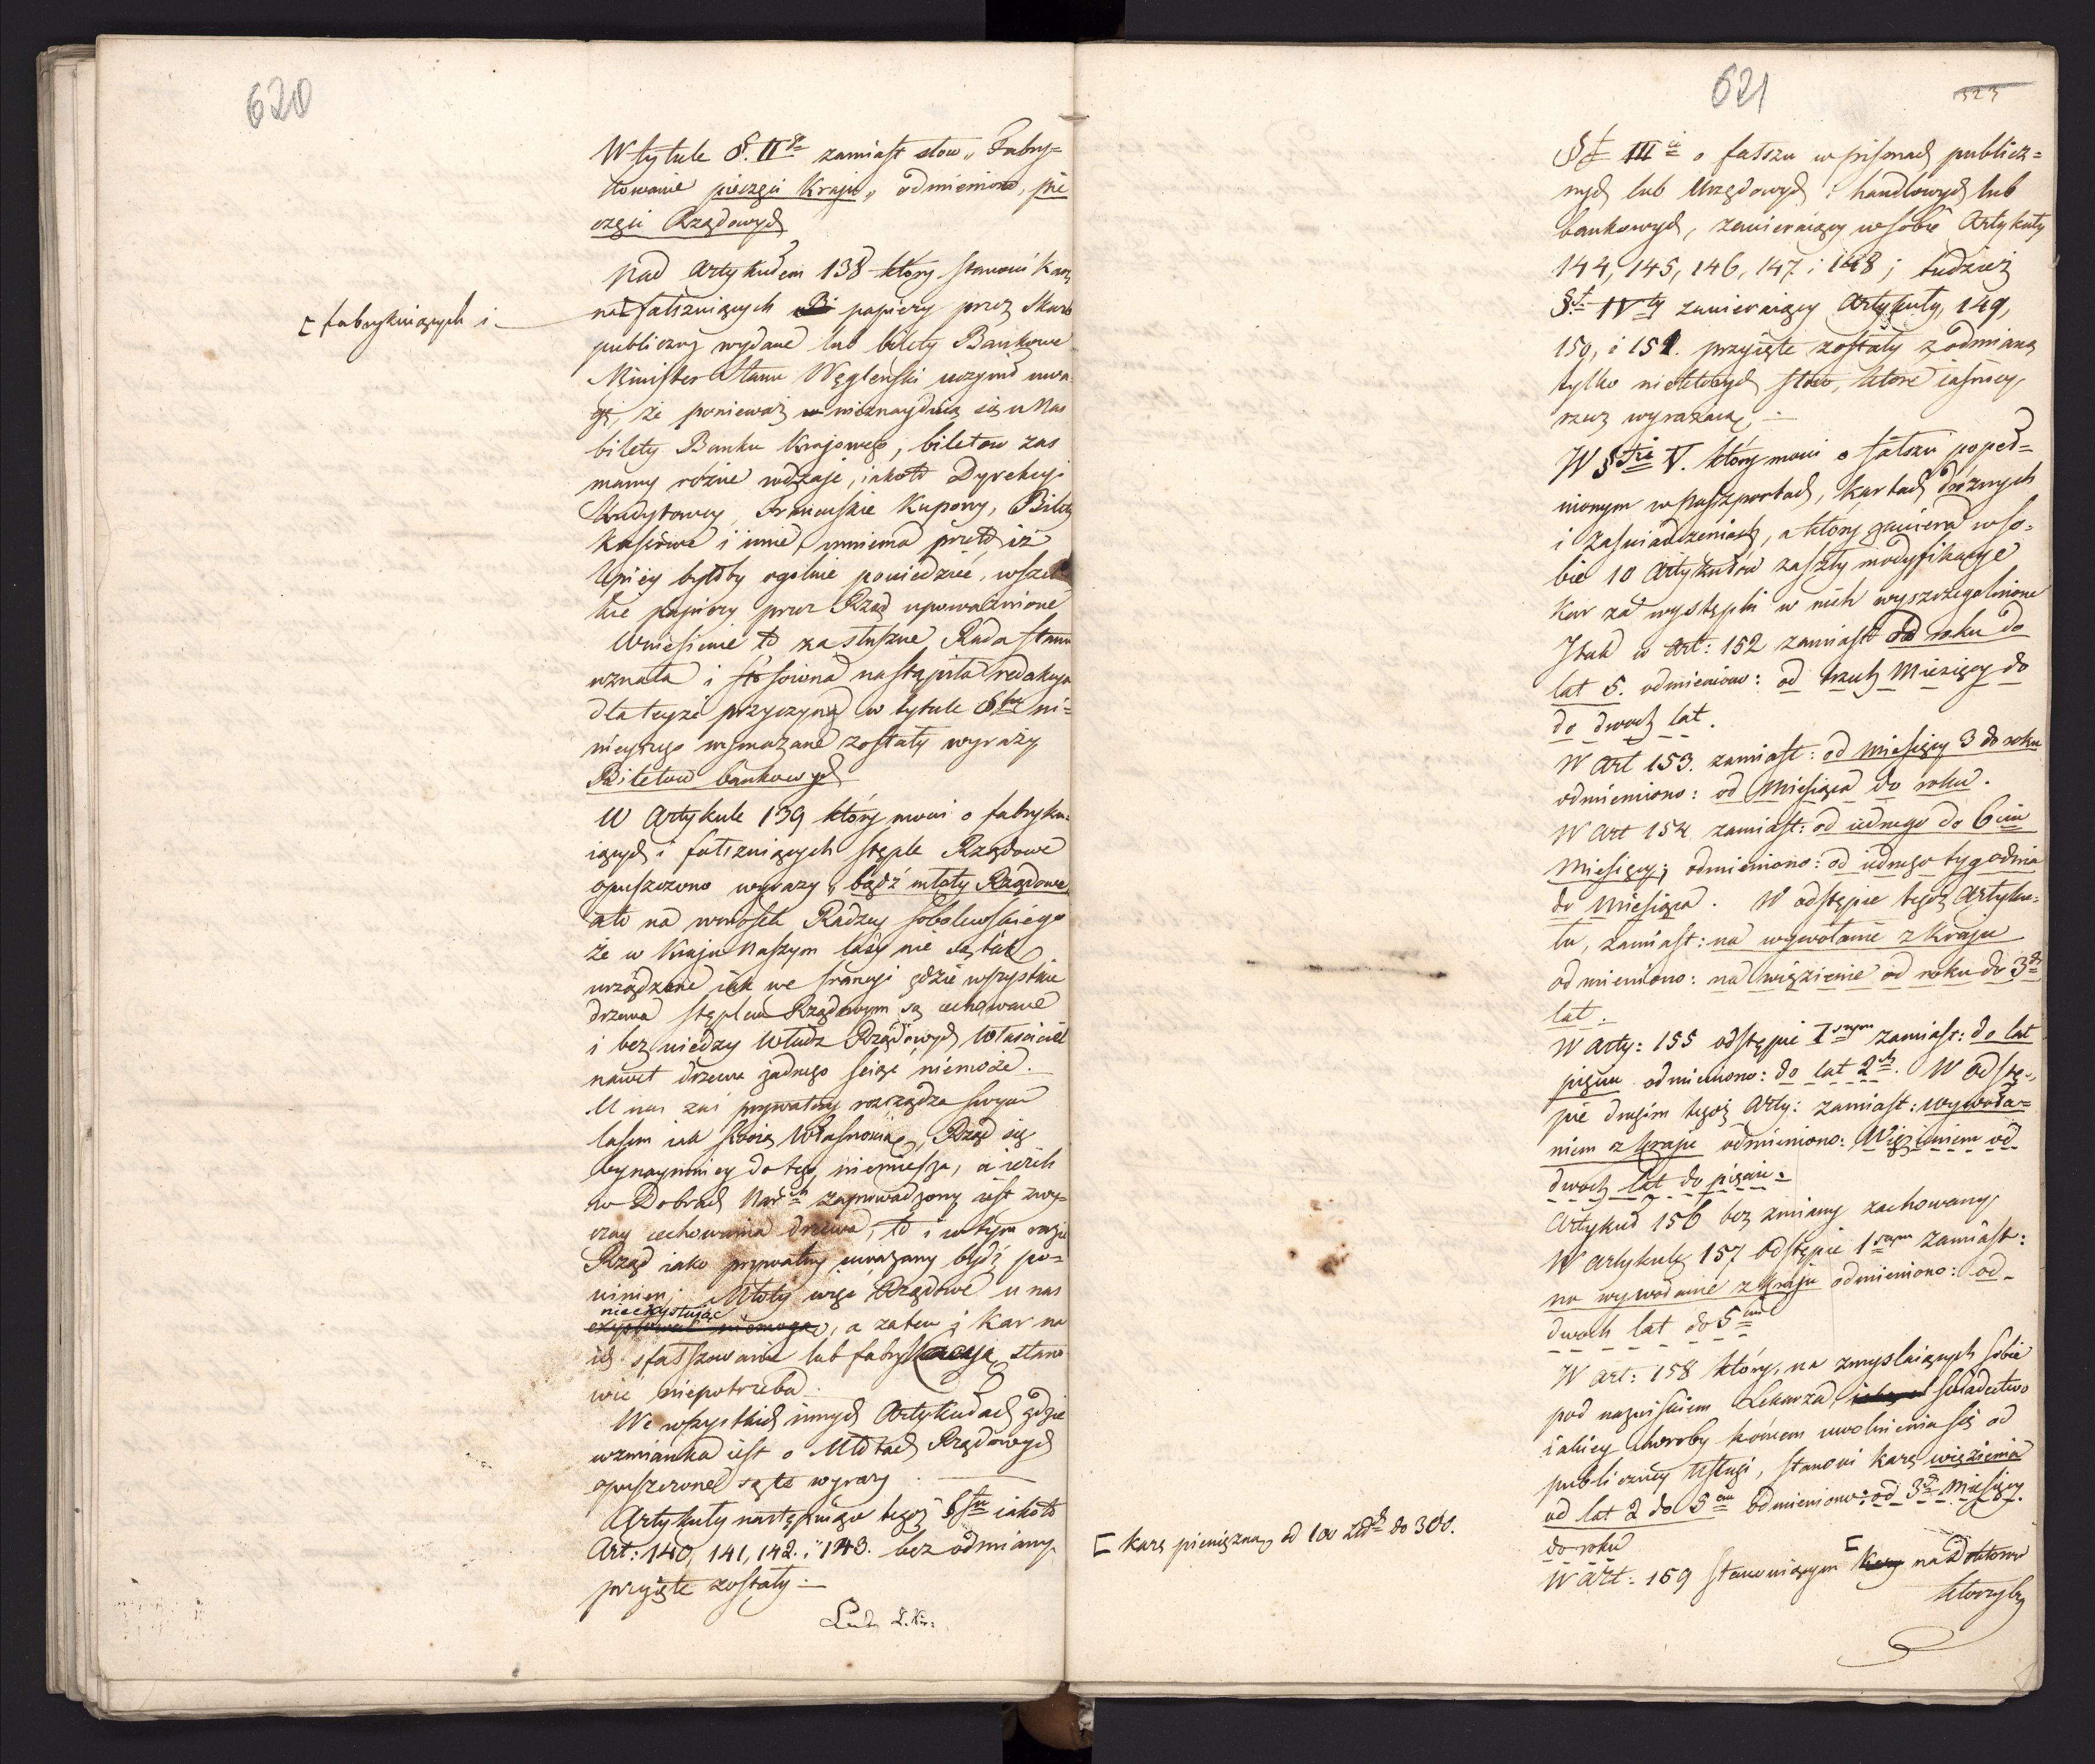 620
W tytule §. II<sup>go</sup> zamiast słow „ Fabry-
kowanie pieczęci Kraju „ odmieniono, pie
częci Rządowych
Nad Artykułem 138 który stanowi karę
na fałszuiących papiery przez Skarb
[ fabrykuiących i
publiczny wydane lub bilety Bankowe
Minister Stanu Węgleński uczynił uwa
gę, że ponieważ nieznayduią się u Nas
bilety Banku Krajowego, biletow zas
mamy rożne rodzaje, iakoto Dyrekcyi
Kredytowey, Francuskie Kupony, Bilety
Kassowe i inne, mniema przeto, iż
lepiey byłoby ogolnie powiedzieć, wszel
kie papiery przez Rząd upoważnione
Wniesienie to za słuszne Rada Stanu
uznała i stosowna nastąpiła redakcya
dla teyże przyczyny w tytule §fu ni-
nieyszego wymazane zostały wyrazy
Biletow bankowych
W Artykule 139 który mowi o fabryku-
iących i fałszuiących stęple Rządowe
opuszczono wyrazy „ bądź młoty Rządowe
ato na wniosek Radzcy Sobolewskiego
że w Kraju Naszym lasy nie są tak
urządzone iak we Francyi gdzie wszystkie
drzewa stęplem Rządowym są cechowane
i bez wiedzy Władz Rządowych Właściciel
nawet drzewa żadnego ściąć niemoże.
U nas zaś prywatny rozrządza swym
lasem iak swoią Własnością, Rząd się
bynaymniey do tego niemiesza, a ieżeli
w Dobrach Nar<sup>ch</sup> zaprowadzony iest zwy-
czay cechowania drzewa, to i w tym razie
Rząd iako prywatny uważany bydź po-
winien; Młoty więc Rządowe u nas
nieexystuiąc
exystować niemogą, a zatem i Kar na
ich sfałszowanie lub fabrykacyą stano
wić niepotrzeba.
We wszystkich innych Artykułach gdzie
wzmianka iest o Młotach Rządowych
opuszczone są te wyrazy
Artykuły następuiące tegoż §fu iakoto
Art: 140, 141, 142. i 143. bez odmiany
przyięte zostały —
621
323
§f III<sup>ci</sup> o fałszu w pismach publicz-
nych lub Urzędowych i handlowych lub
bankowych, zawieraiący w sobie Artykuły
144, 145, 146, 147 i 148; tudzież
§f IV<sup>ty</sup> zawieraiący Artykuły, 149,
150, i 151. przyięte zostały z odmianą
tylko niektórych słow, które iaśniey
rzecz wyrażaią. —
W §fie V. który mowi o fałszu popeł-
nionym w paszportach, kartach drożnych
i zaświadczeniach, a który zawiera w so-
bie 10 Artykułów zaszły modyfikacye
kar za występki w nich wyszczegolnione
I tak w Art: 152 zamiast od roku do
lat 5. odmieniono: od trzech Miesięcy do
do dwoch lat.
W Art 153. zamiast: od Miesięcy 3 do roku
odmieniono: od Miesiąca do roku.
W Art 154 zamiast: od iednego do 6ciu
Miesięcy; odmieniono: od iednego tygodnia
do Miesiąca. W odstępie tegoż Artyku-
łu, zamiast: na wywołanie z Kraju
odmieniono: na więzienie od roku do 3<sup>ch</sup>
lat.
W Arty: 155 odstępie I<sup>szym</sup> zamiast: do lat
pięciu odmieniono: do lat 2<sup>ch</sup>. W odstę-
pie drugim tegoż Arty: zamiast: wywoła-
niem z kraju odmieniono: Więzieniem od
dwoch lat do pięciu.
Artykuł 156 bez zmiany zachowany
W Artykule 157 odstępie 1<sup>szym</sup> zamiast:
na wywołanie z kraju odmieniono: od
dwoch lat do 5<sup>ciu</sup>
W Art: 158 który, na zmyslaiących sobie
pod nazwiskiem Lekarza, świadectwo
iakiey choroby końcem uwolnienia się od
publiczney Usługi, stanowi karę więzienia
od lat 2 do 5<sup>ciu</sup> odmieniono: od 3<sup>ch</sup> Miesięcy
do roku
W Art: 159 stanowiącym [ kary na Doktorow
[ karę pieniężną od 100 Zł<sup>ch</sup> do 300.
którzyby